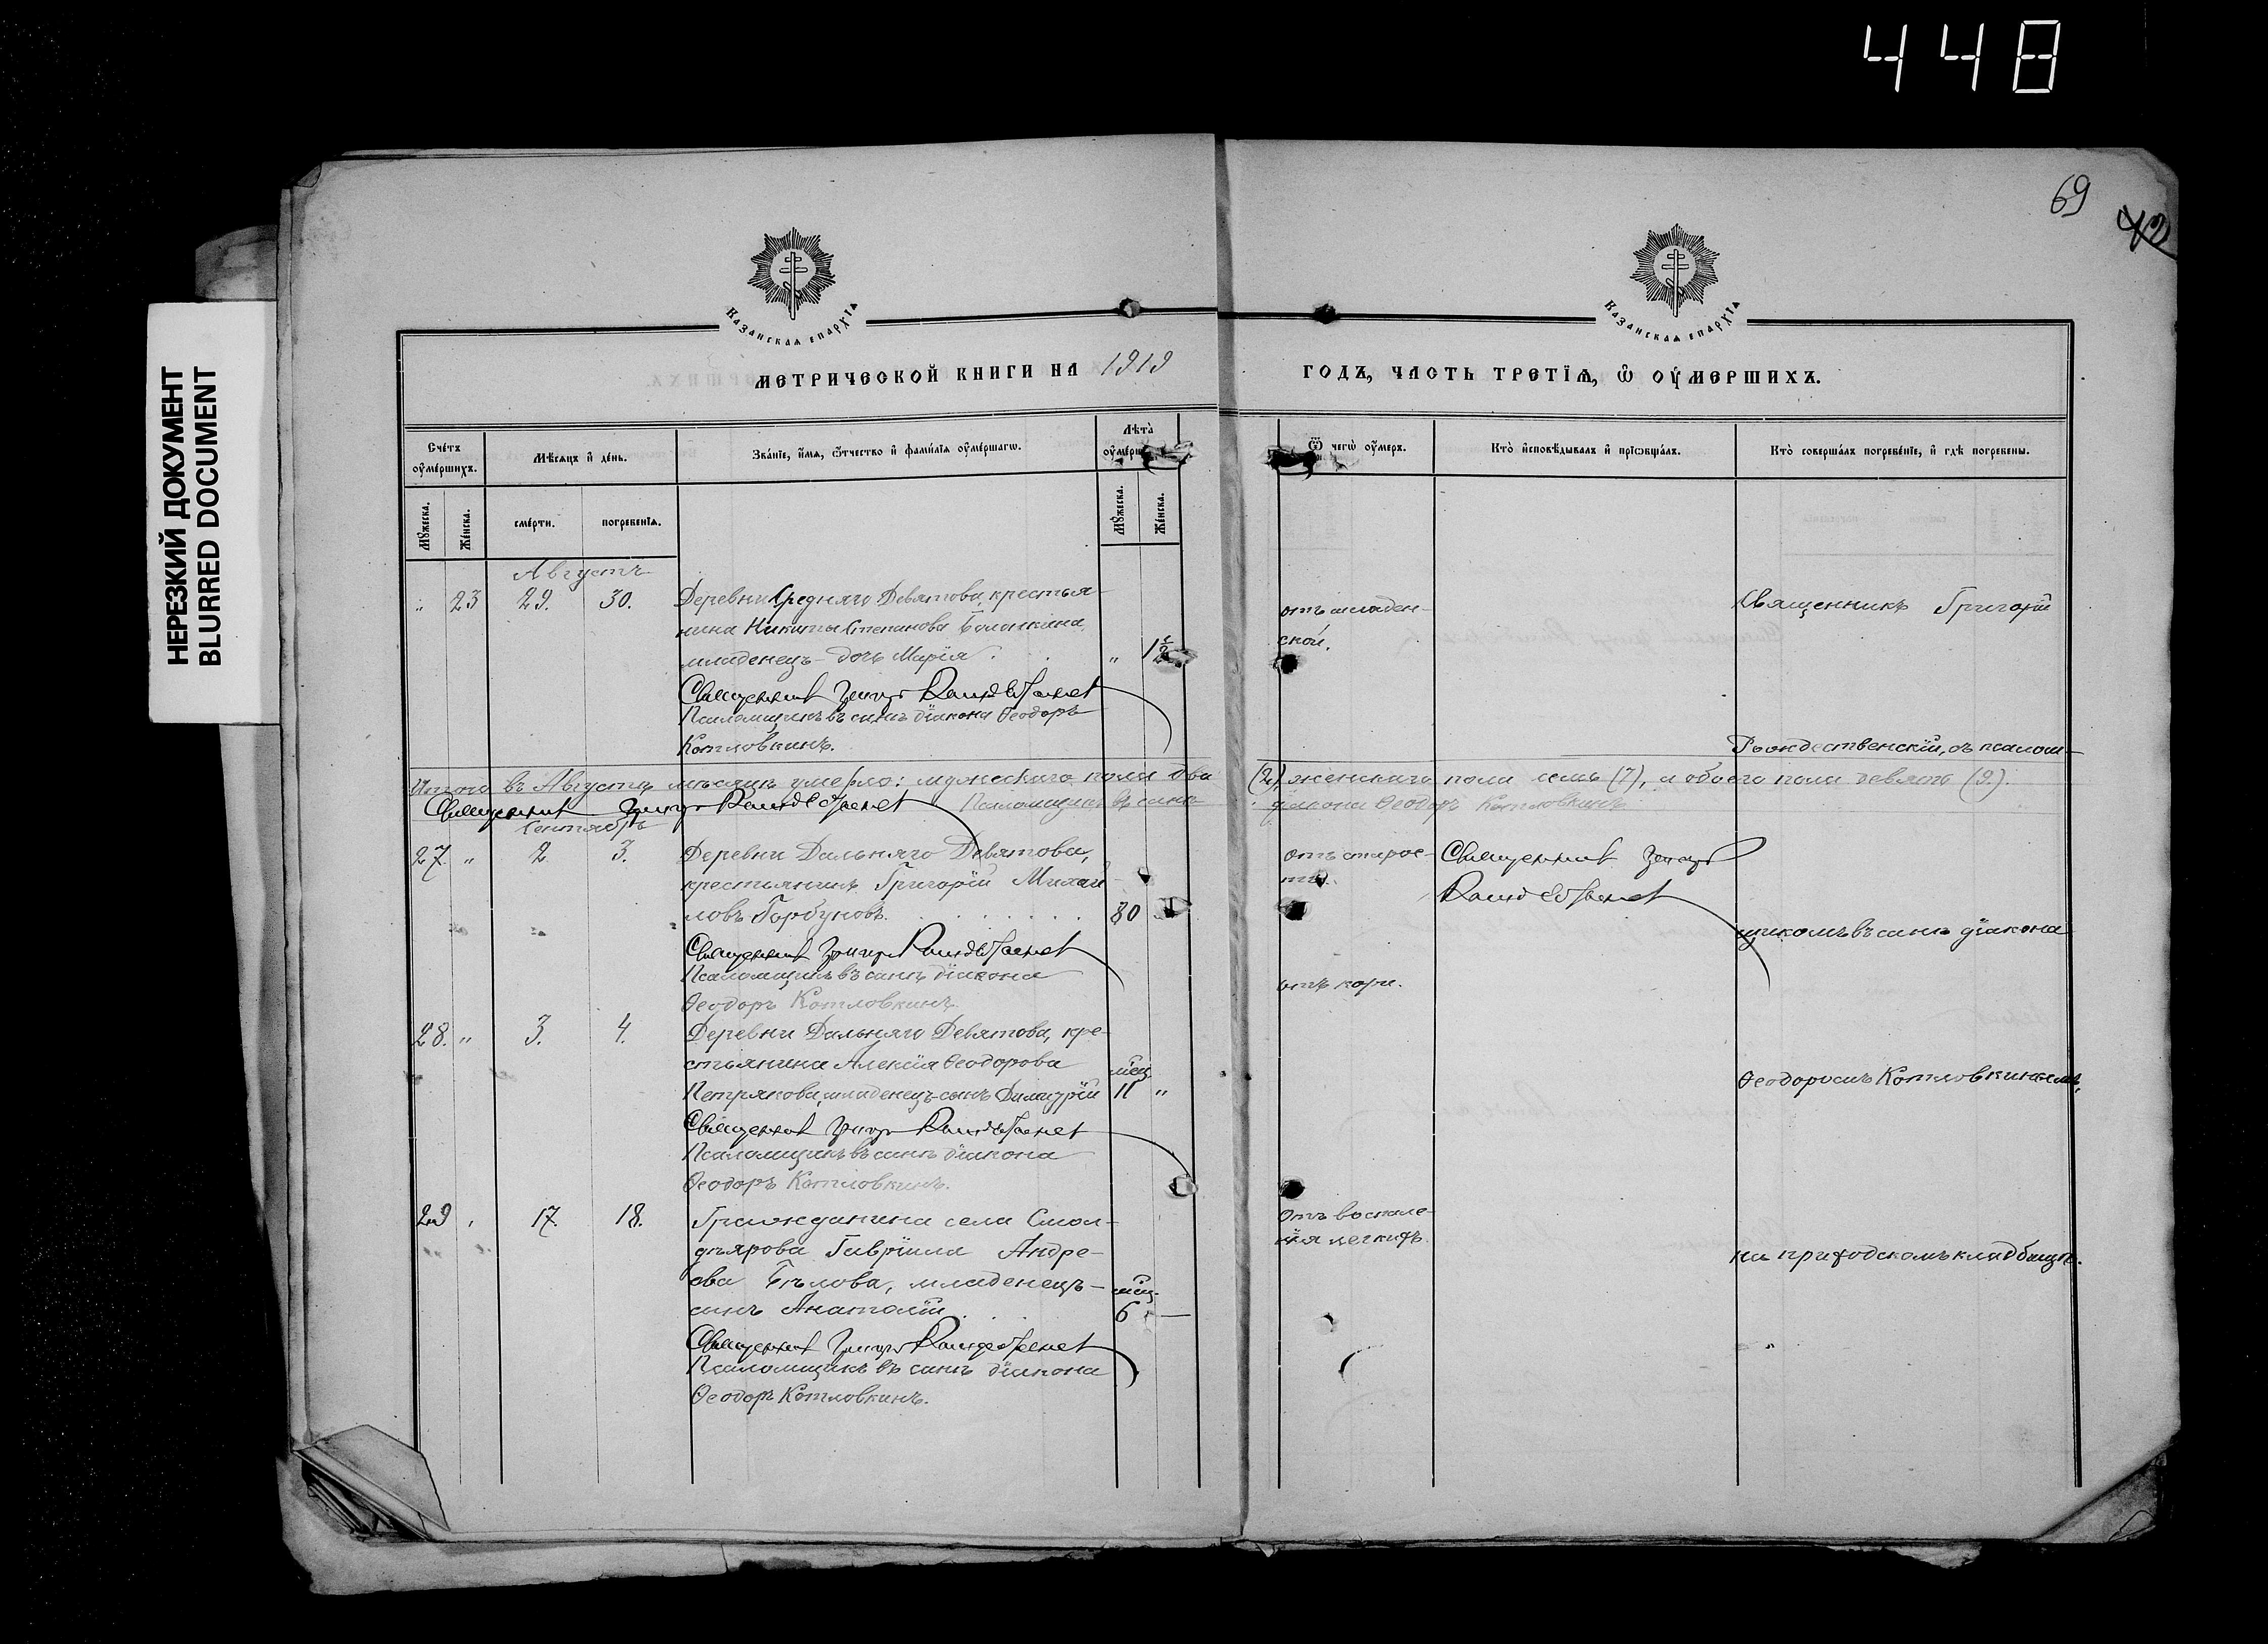 448
69
НЕРЕЗКИЙ ДОКУМЕНТ
BLURRED DOCUMENT
КАЗАНСКАѦ ЕПАРХІѦ
КАЗАНСКАѦ ЕПАРХІѦ
МЕТРИЧЕСКОЙ КНИГИ НА 1919
ГОДЪ, ЧАСТЬ ТРЕТІѦ, Ѽ ОУМЕРШИХЪ.
Счетъ оумершихъ.
Мѣсяцъ и день.
Званіе, имя, отчество и фамилія оумершагѡ.
Лѣта
Ѿ чегѡ оумеръ.
Кто исповѣдывалъ и пріѡбщалъ.
Кто совершалъ погребеніе, и гдѣ погребены.
Мужеска.
Женска.
смерти.
погребенія.
Мужеска.
Женска.
Августъ
„ 23 29. 30. Деревни Средняго Девятова, крестья-
нина Никиты Степанова
младенецъ - дочь Марія . . „ 1½
отъ младен-
ской.
Священникъ Григорій
Священникъ Григорій Рождественскій
Псаломщикъ въ санѣ діакона Ѳеодоръ
Котловкинъ.
Рождественскій, съ псалом-
Итого въ Августѣ мѣсяцѣ умерло: мужескаго пола два (2), женскаго пола семь (7), а обоего пола девять (9).
Священникъ Григорій Рождественскій Псаломщикъ въ санѣ діакона Ѳеодоръ Котловкинъ
Сентябрь
27. „ 2. 3. Деревни Дальняго Девятова,
крестьянинъ Григорій Михаи-
ловъ Горбуновъ. 80
отъ старос-
ти.
Священникъ Григорій
Рождественскій
Священникъ Григорій Рождественскій
Псаломщикъ въ санѣ діакона
Ѳеодоръ Котловкинъ.
щикомъ въ санѣ діакона
28. „ 3. 4. Деревни Дальняго Девятова, кре-
стьянина Алексія Ѳеодорова
Петрякова, младенецъ-сынъ Димитрій мѣс. 11 „
отъ кори.
Ѳеодоромъ Котловкинымъ,
Священникъ Григорій Рождественскій
Псаломщикъ въ санѣ діакона
Ѳеодоръ Котловкинъ.
29 „ 17. 18. Гражданина села Смол-
дѣярова Гавріила Андре-
ева Бѣлова, младенецъ -
сынъ Анатолій. мѣс. 6 —
Отъ воспале-
нія легкихъ.
на приходскомъ кладбищѣ.
Священникъ Григорій Рождественскій
Псаломщикъ въ санѣ діакона
Ѳеодоръ Котловкинъ.